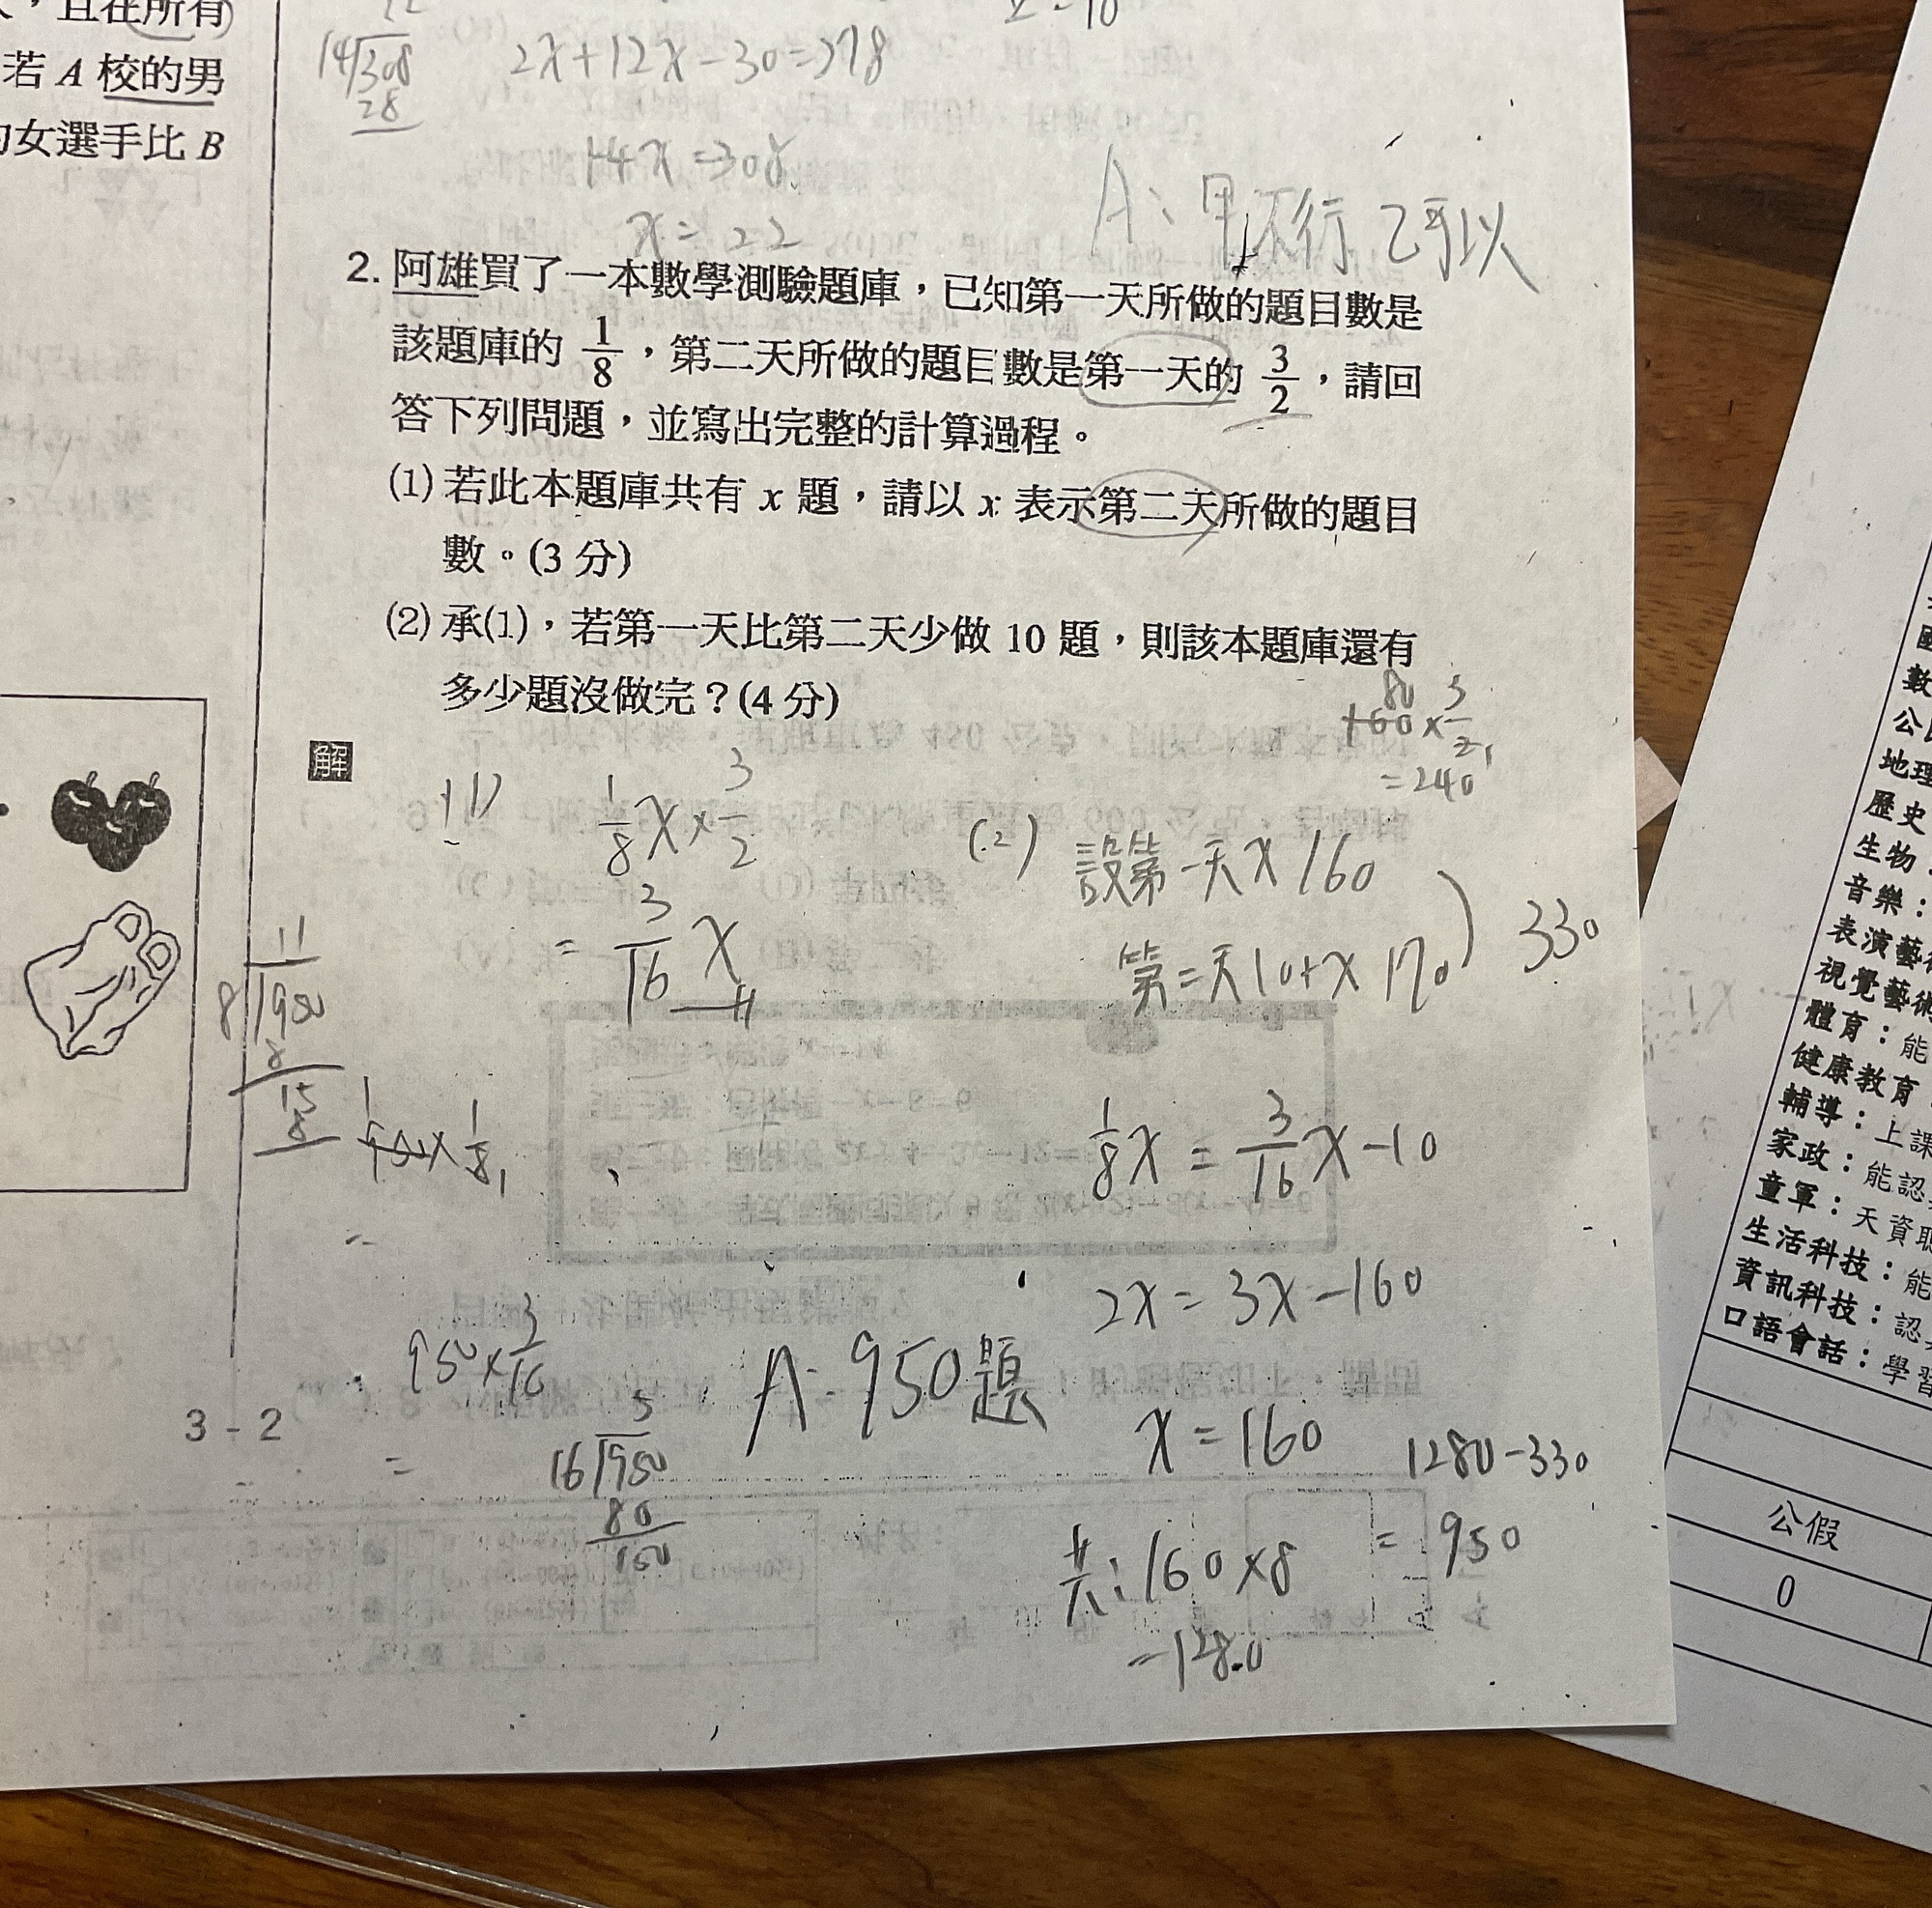 且在所有
若 A 校的男
女選手比 B
14 308
28
2x+12x-30=278
14x=308
x=22
A:甲不行 乙可以
2. 阿雄買了一本數學測驗題庫，已知第一天所做的題目數是
該題庫的 1/8，第二天所做的題目數是第一天的 3/2，請回
答下列問題，並寫出完整的計算過程。
(1) 若此本題庫共有 x 題，請以 x 表示第二天所做的題目
數。(3 分)
(2) 承(1)，若第一天比第二天少做 10 題，則該本題庫還有
多少題沒做完？(4 分)
解
(1) 1/8 x × 3/2
= 3/16 x
=240
(2) 設第一天 x 160
第二天 10+x 170
330
1/8 x = 3/16 x - 10
2x = 3x - 160
x = 160
共:160×8
=1280
1280-330
= 950
A:950題
11
8 950
8
15
8
950×1/8
950×3/16
=
5
16 950
80
150
3 - 2
數
公
地理
歷史
生物
音樂：
表演藝
視覺藝術
體育：能
健康教育
輔導：上課
家政：能認
童軍：天資
生活科技：能
資訊科技：認
口語會話：學習
公假
0